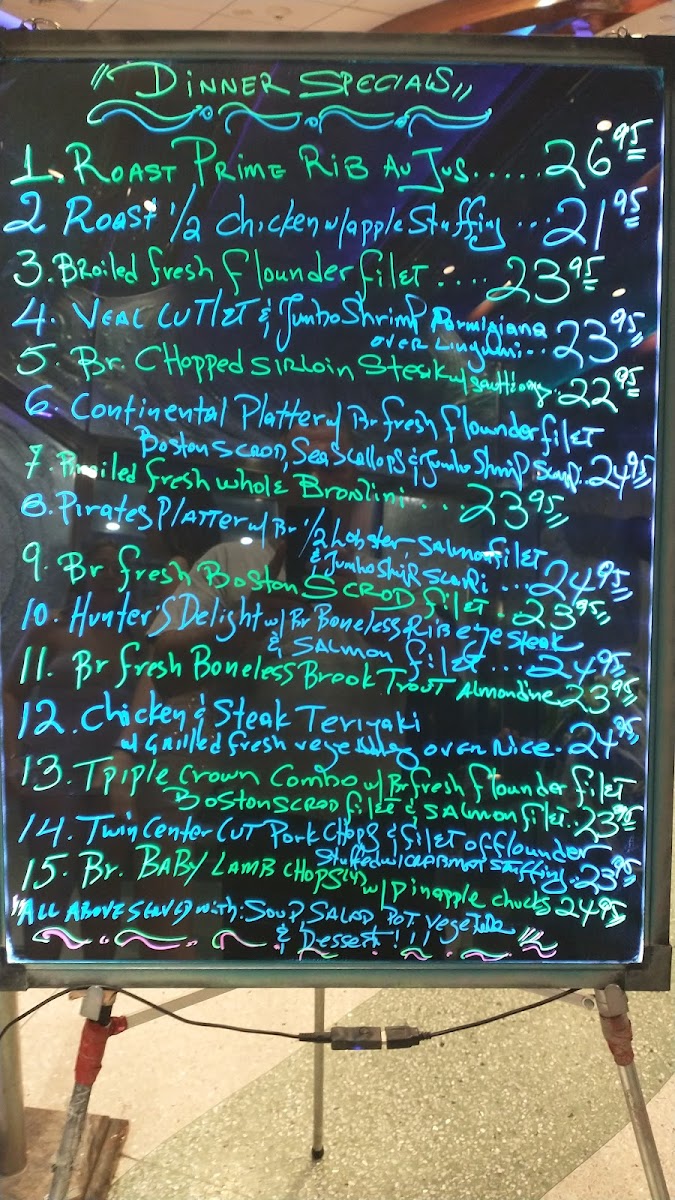 "DINNER SPECIALS"
1. ROAST PRIME RIB AU JUS..... 26 95
2 Roast 1/2 chicken w/apple Stuffing ... 21 95
3. BRoiled fresh flounder filET .... 23 95
4. VEAL CUTLET & Jumbo Shrimp Parmigiana
OVER Linguini... 23 95
5. Br. CHopped SIRLoin Steak w/ 22 95
6. Continental Platter w/ Br fresh flounder filET
Boston SCROD, Sea Scallops & Jumbo Shrimp 24 95
7. fresh whole Bronzini ... 23 95
8. Pirates PLATTER w/ Br 1/2 Lobster, SALMON filET
& Jumbo Shrimp ... 24 95
9. Br fresh BOSTON SCROD filET . 23 95
10. Hunter'S Delight w/ Br Boneless RiB eye STeak
& SALMON filET ... 24 95
11. Br fresh Boneless Brook TrouT ALmondine 23 95
12. Chicken & Steak Teriyaki
w/ Grilled fresh vegetables over Rice. 24 95
13. Triple Crown Combo w/ Br fresh flounder filET
BOSTON SCROD filET & SALMON filET.. 23 95
14. Twin Center CUT Pork CHops & filET of flounder
Stuffed w/ CRABMEAT Stuffing. 23 95
15. Br. BABY LAMB CHOPS (4) w/ Pineapple chucks 24 95
"ALL ABOVE SERVED WITH: SOUP, SALAD, POT, vegeTable
& Dessert!!!"